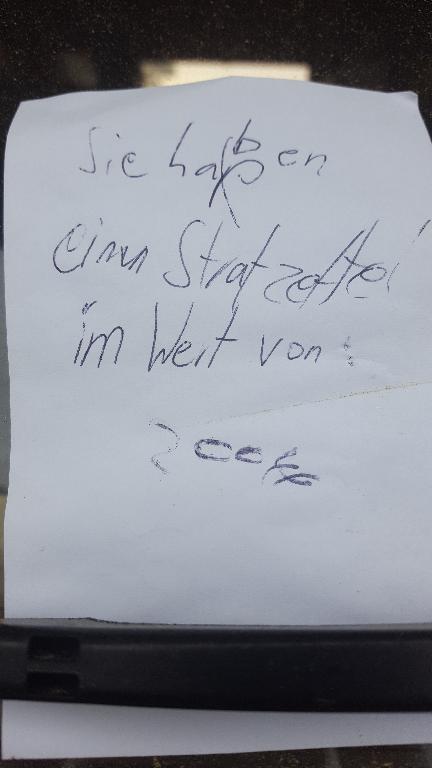 Sie haben
einen Strafzettel
im Wert von:
200